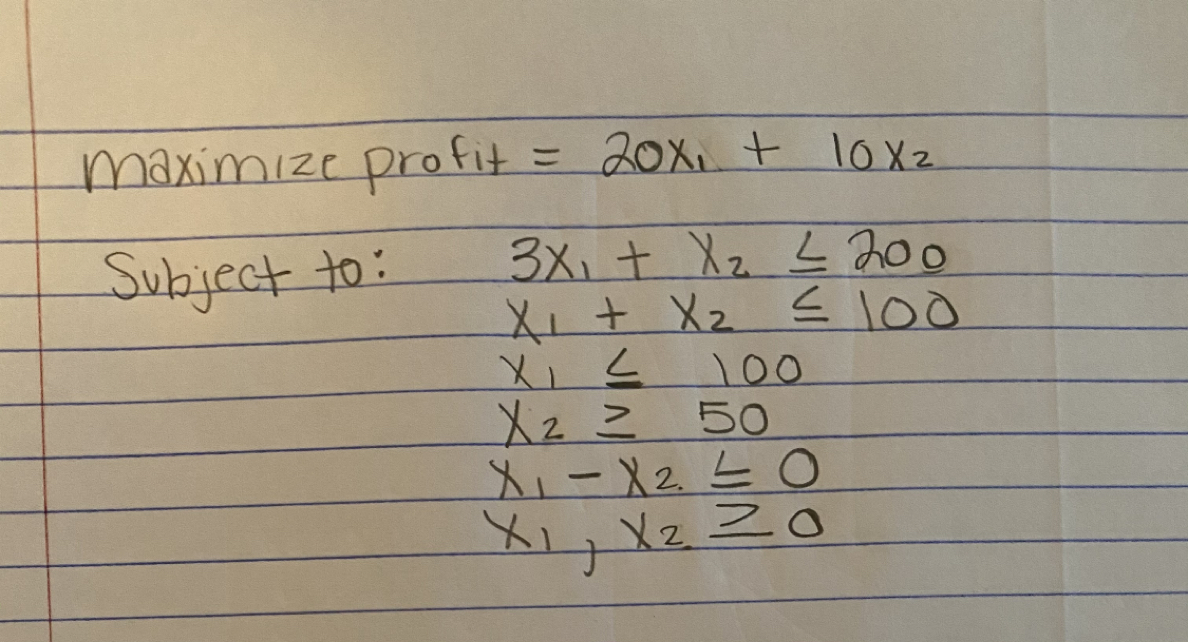 maximize profit = 20x₁ + 10x₂
Subject to: 3x₁ + x₂ ≤ 200
x₁ + x₂ ≤ 100
x₁ ≤ 100
x₂ ≥ 50
x₁ - x₂ ≤ 0
x₁, x₂ ≥ 0